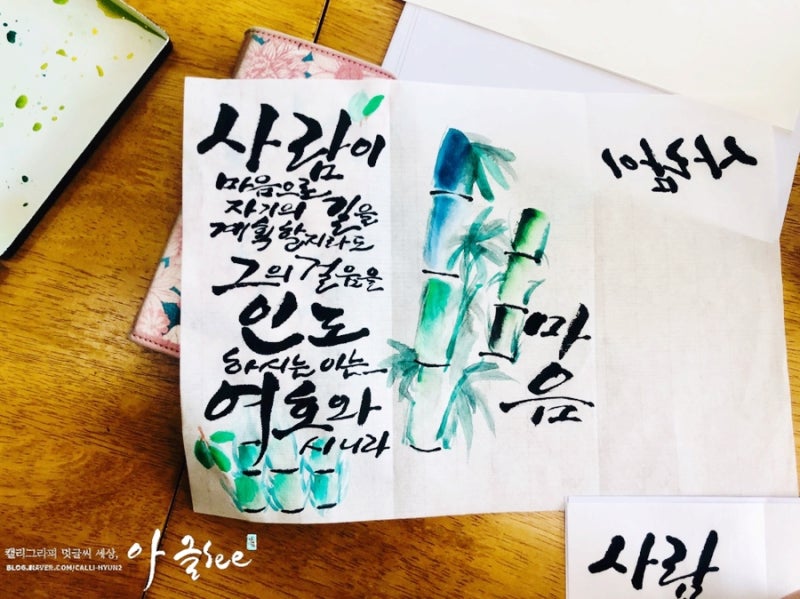 사람이
마음으로
자기의 길을
계획할지라도
그의 걸음을
인도
하시는 이는
여호와
시니라
마
음
사람의
사람
캘리그라피 멋글씨 세상,
아 글see
BLOG.NAVER.COM/CALLI-HYUN2